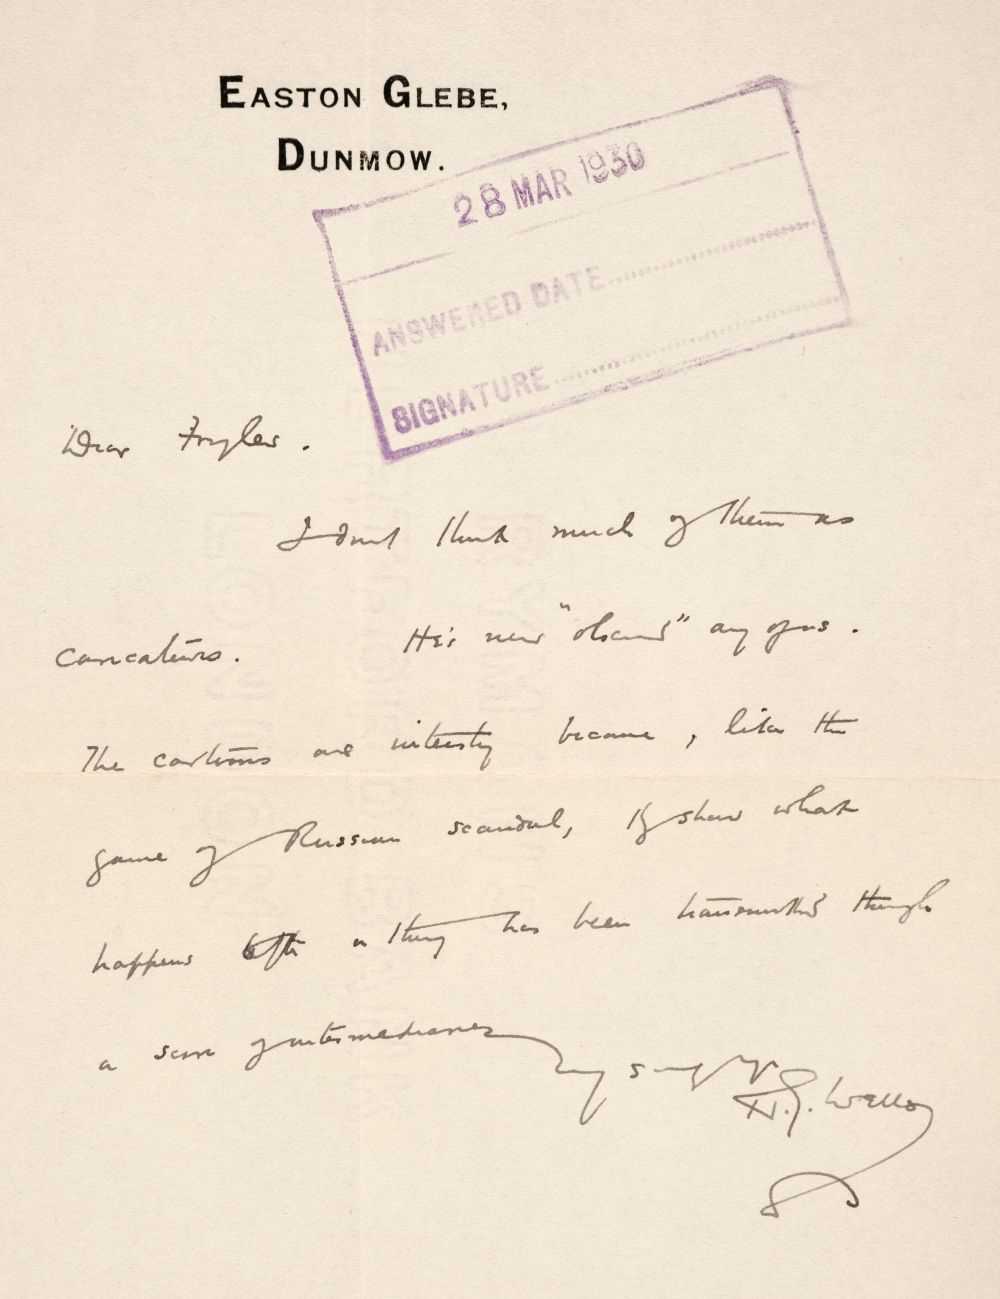 EASTON GLEBE,
DUNMOW.
28 MAR 1930
ANSWERED DATE
SIGNATURE
Dear
I don't think much of them as
caricatures. He's never "observed" any of us.
The cartoons are interesting because, like the
game of Russian scandal, they show what
happens after a thing has been transmitted through
a score of intermediaries
H.G. Wells